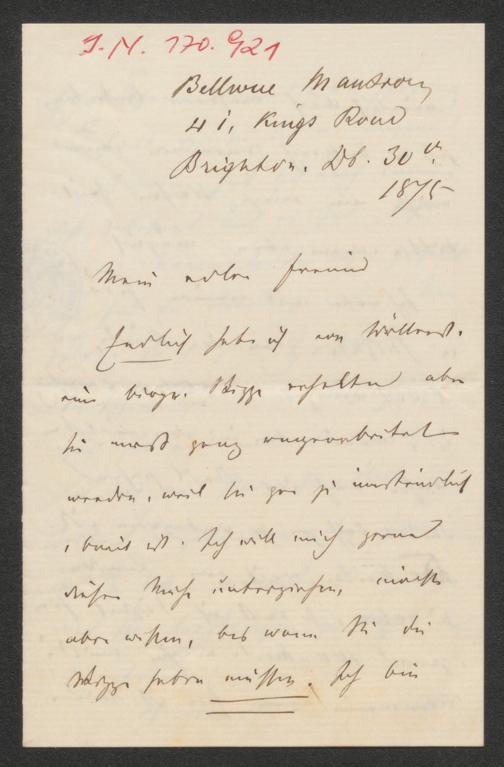 I. N. 170.921
Bellevue Mansions
41, Kings Road
Brighton. Db. 30th
1875
Mein edler Freund
Endlich habe ich von
eine biogr. Skizze erhalten aber
sie muß ganz umgearbeitet
werden, weil sie gar zu umständlich
u breit ist. Ich will mich gerne
dieser Mühe unterziehen, möchte
aber wissen, bis wann Sie die
Skizze haben müssen. Ich bin